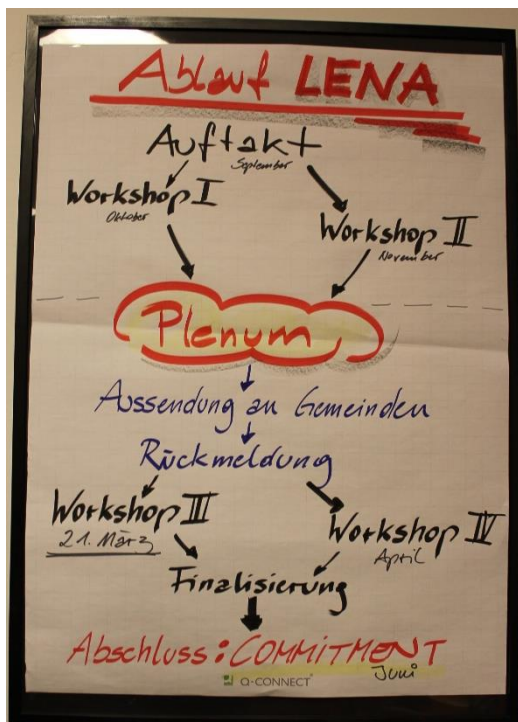 Ablauf LENA
Auftakt
September
Workshop I
Oktober
Workshop II
November
Plenum
Aussendung an Gemeinden
Rückmeldung
Workshop III
21. März
Workshop IV
April
Finalisierung
Abschluss: COMMITMENT
Juni
Q-CONNECT